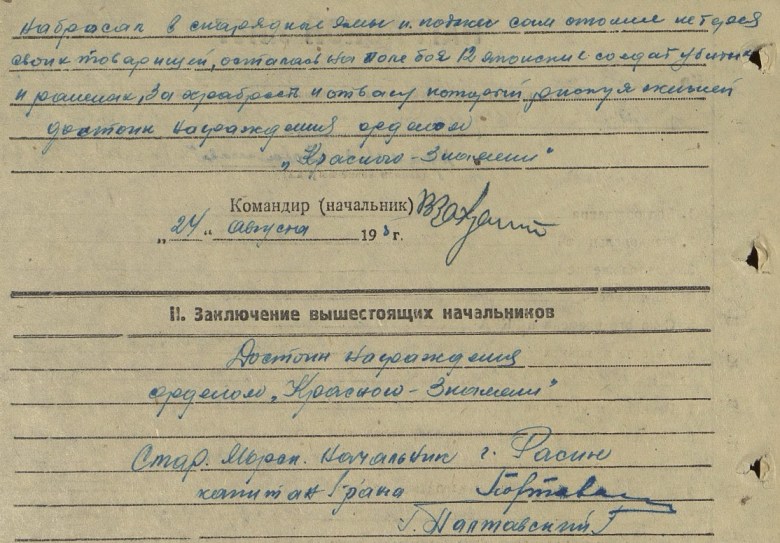 Набрасал в снарядные ямы и поджег сам отошел не теряя
своих товарищей, осталась на поле боя 12 японские солдат убитых
и раненых, За храбрость и отвагу который рискуя жизней
достоин награждения орденом
„Красного-Знамени"
Командир (начальник)
„24" Августа 193 г.
II. Заключение вышестоящих начальников
Достоин награждения
орденом „Красного-Знамени"
Стар. Морск. Начальник г. Расин
капитан 1 ранга
/. Полтавский /